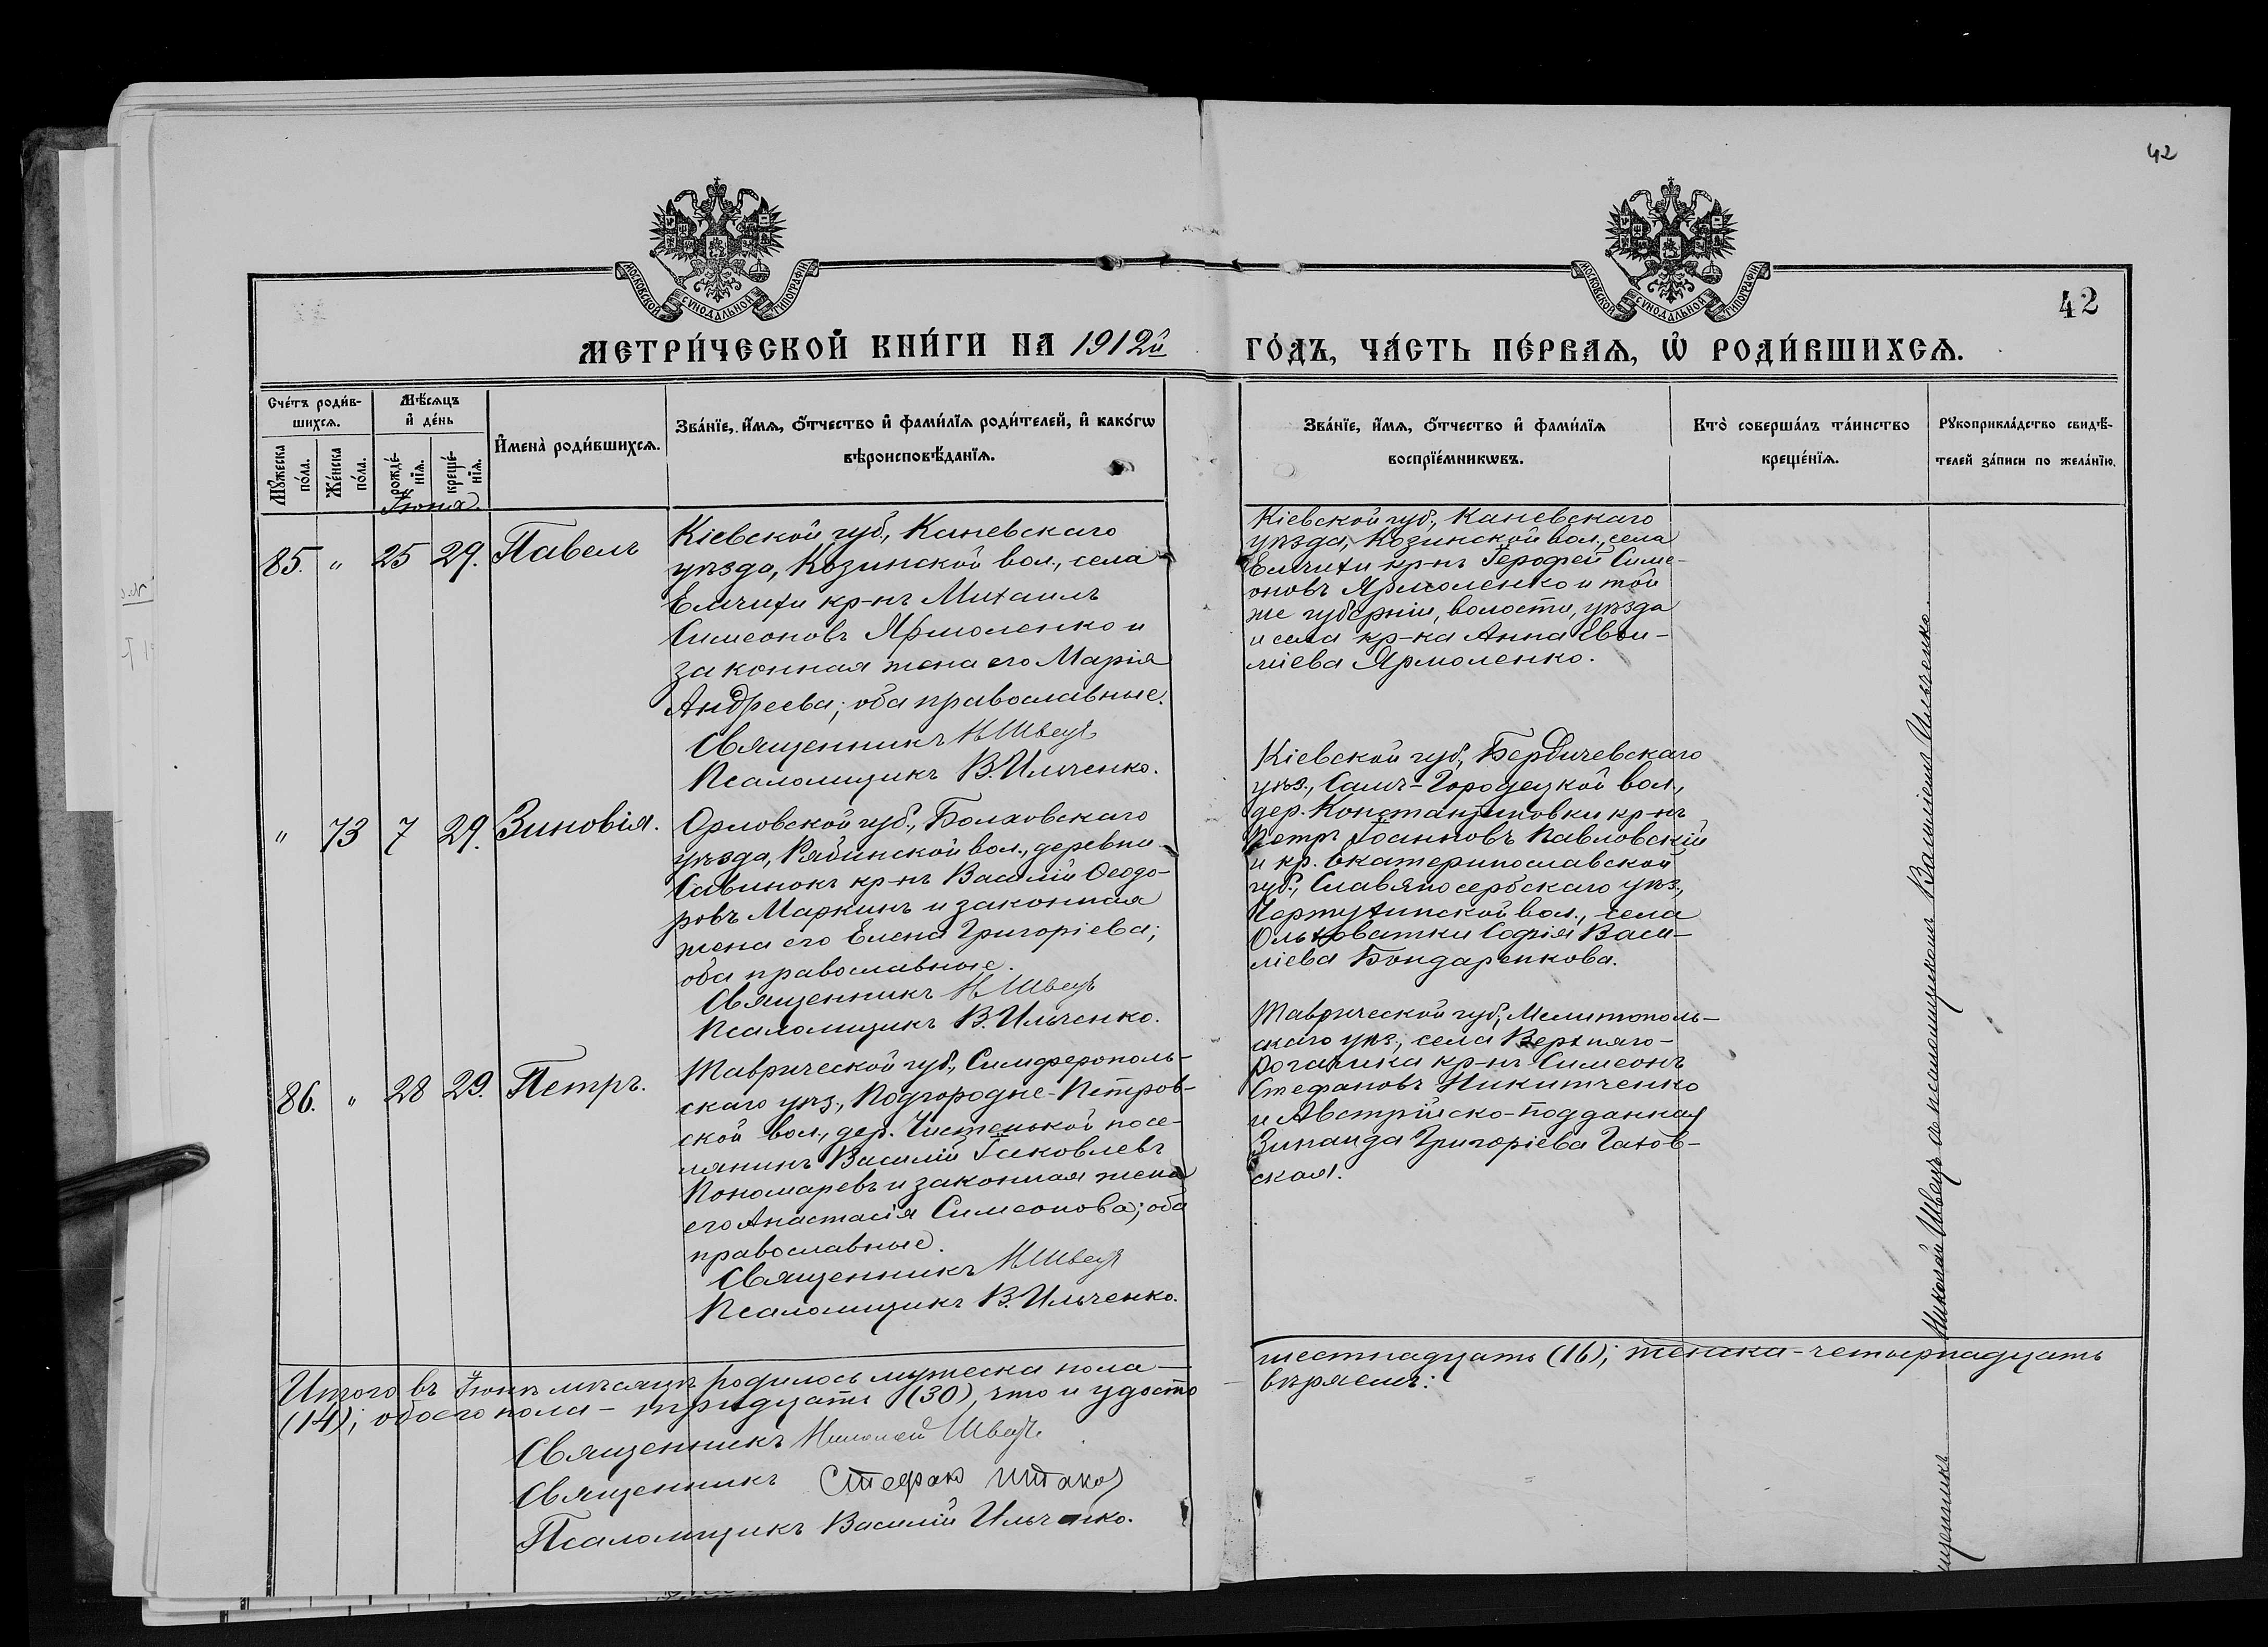 42
МОСКОВСКОЙ СѴНОДАЛЬНОЙ ТИПОГРАФІИ
МОСКОВСКОЙ СѴНОДАЛЬНОЙ ТИПОГРАФІИ
42
МЕТРИ́ЧЕСКОЙ КНИ́ГИ НА 1912й ГО́ДЪ, ЧА́СТЬ ПЕ́РВАѦ, Ѡ҆ РОДИ́ВШИХСѦ.
Сче́тъ роди́в-
шихсѧ.
Мꙋ́жеска по́ла.
Же́нска по́ла.
Мѣ́сѧцъ
и҆ де́нь
рожде́-
нїѧ.
креще́-
нїѧ.
И҆мена̀ роди́вшихсѧ.
Зва́нїе, и҆́мѧ, ѻ҆́тчество и҆ фами́лїѧ роди́телей, и҆ како́гѡ
вѣроисповѣ́данїѧ.
Зва́нїе, и҆́мѧ, ѻ҆́тчество и҆ фами́лїѧ
воспрїе́мникѡвъ.
Кто̀ соверша́лъ та́инство
креще́нїѧ.
Рꙋкоприкла́дство свидѣ́-
телей за́писи по жела́нїю.
Іюня.
85. " 25 29. Павелъ
Кіевской губ., Каневскаго
уѣзда, Козинской вол., села
Емчихи кр-нъ Михаилъ
Симеоновъ Ярмоленко и
законная жена его Марія
Андреева; оба православные.
Священникъ Н Швецъ
Псаломщикъ В. Ильченко.
Кіевской губ., Каневскаго
уѣзда, Козинской вол., села
Емчихи кр-нъ Іерофей Симе-
оновъ Ярмоленко и той
же губерніи, волости, уѣзда
и села кр-ка Анна
Ярмоленко.
" 73 7 29. Зиновія.
Орловской губ., Болховскаго
уѣзда, Рябинской вол., деревни
Савинокъ кр-нъ Василій Ѳеодо-
ровъ Маркинъ и законная
жена его Елена Григоріева;
оба православные.
Священникъ Н Швецъ
Псаломщикъ В. Ильченко.
Кіевской губ., Бердичевскаго
уѣз., Самъ-Городецкой вол.,
дер. Константиновки кр-нъ
Петръ Іоанновъ Павловскій
и кр. Екатеринославской
губ., Славяносербскаго уѣз.,
Чермухинской вол., села
Ольховатки Софія Васи-
ліева Бондаренкова.
86. " 28 29. Петръ.
Таврической губ., Симферополь-
скаго уѣз., Подгородне-Петров-
ской вол., дер. Чистенькой посе-
лянинъ Василій Іаковлевъ
Пономаревъ и законная жена
его Анастасія Симеонова; оба
православные.
Священникъ Н Швецъ
Псаломщикъ В. Ильченко.
Таврической губ., Мелитополь-
скаго уѣз., села Верхняго-
Рогачика кр-нъ Симеонъ
Стефановъ Никитченко
и Австрійско-подданная
Зинаида Григоріева Гахов-
ская.
Священникъ Николай Швецъ съ псаломщикомъ Василіемъ Ильченко.
Итого въ Іюнѣ мѣсяцѣ родилось мужеска пола — шестнадцать (16); женска - четырнадцать
(14); обоего пола - тридцать (30), что и удосто - вѣряемъ:
Священникъ Николай Швецъ
Священникъ Стефанъ
Псаломщикъ Василій Ильченко.